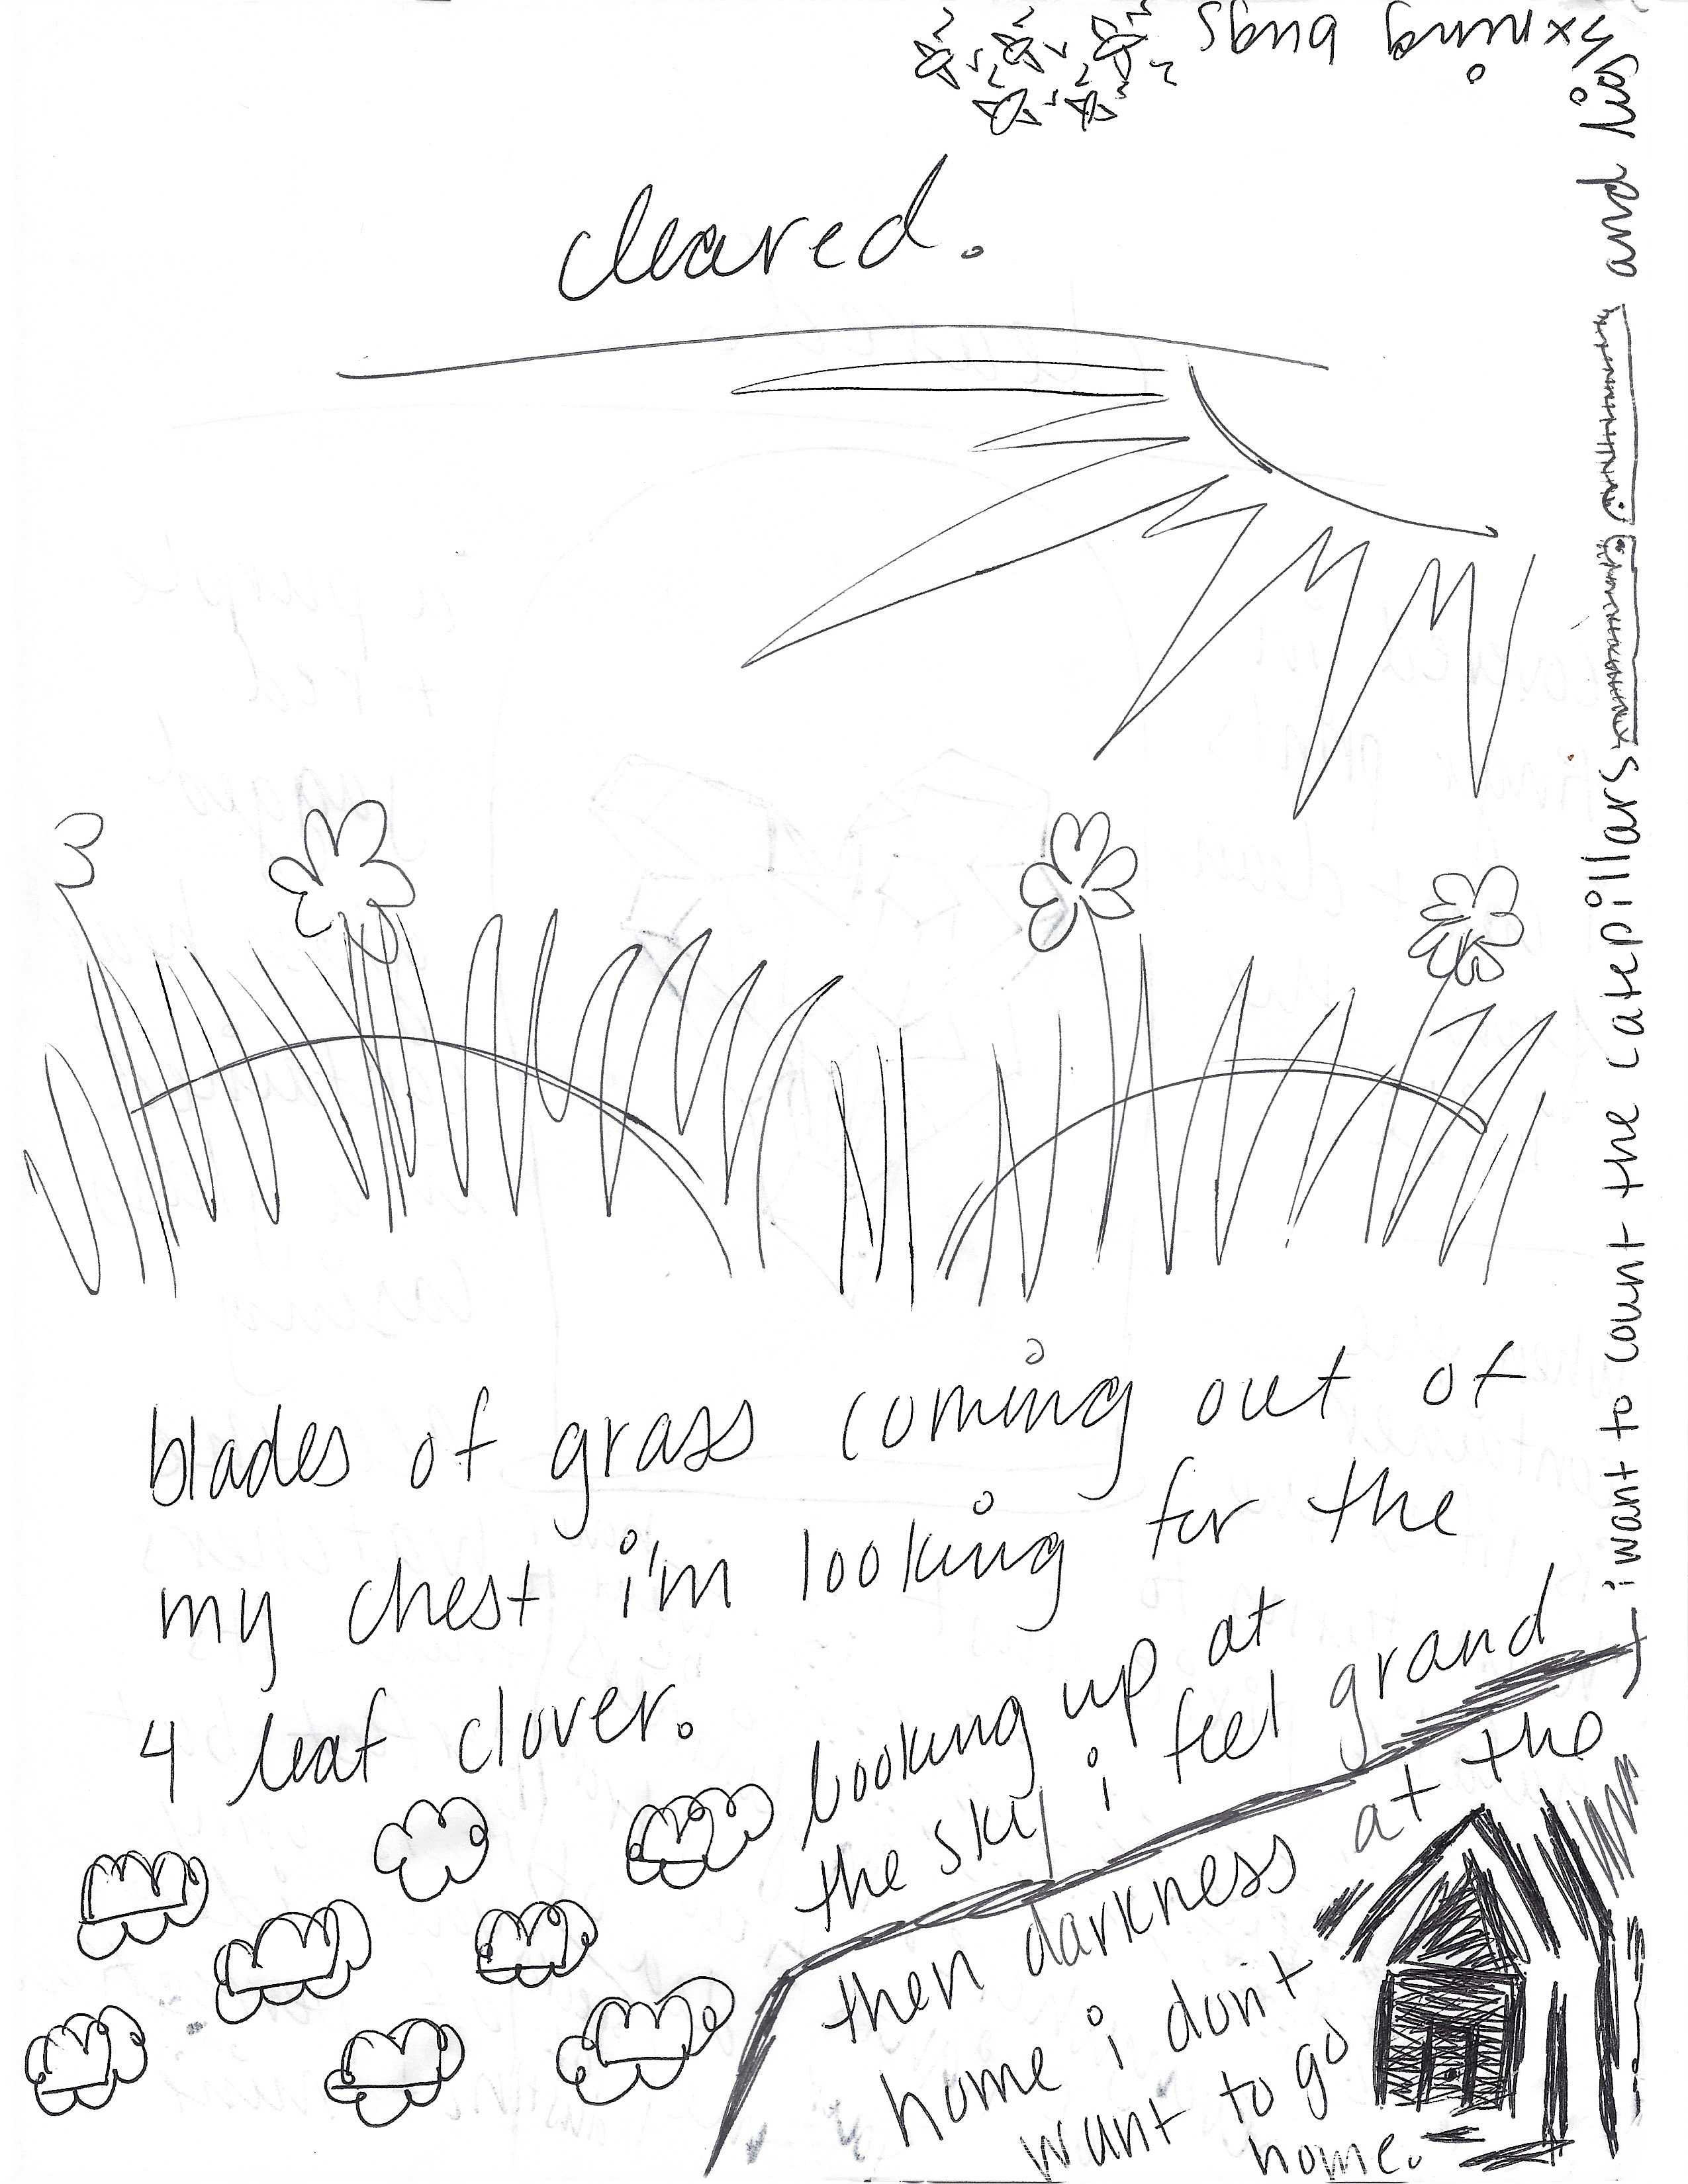 cleared.
blades of grass coming out of
my chest i'm looking for the
4 leaf clover.
looking up at
the sky i feel grand
then darkness at the
home i don't
want to go
home.
i want to count the catepillars and lig
htning bugs